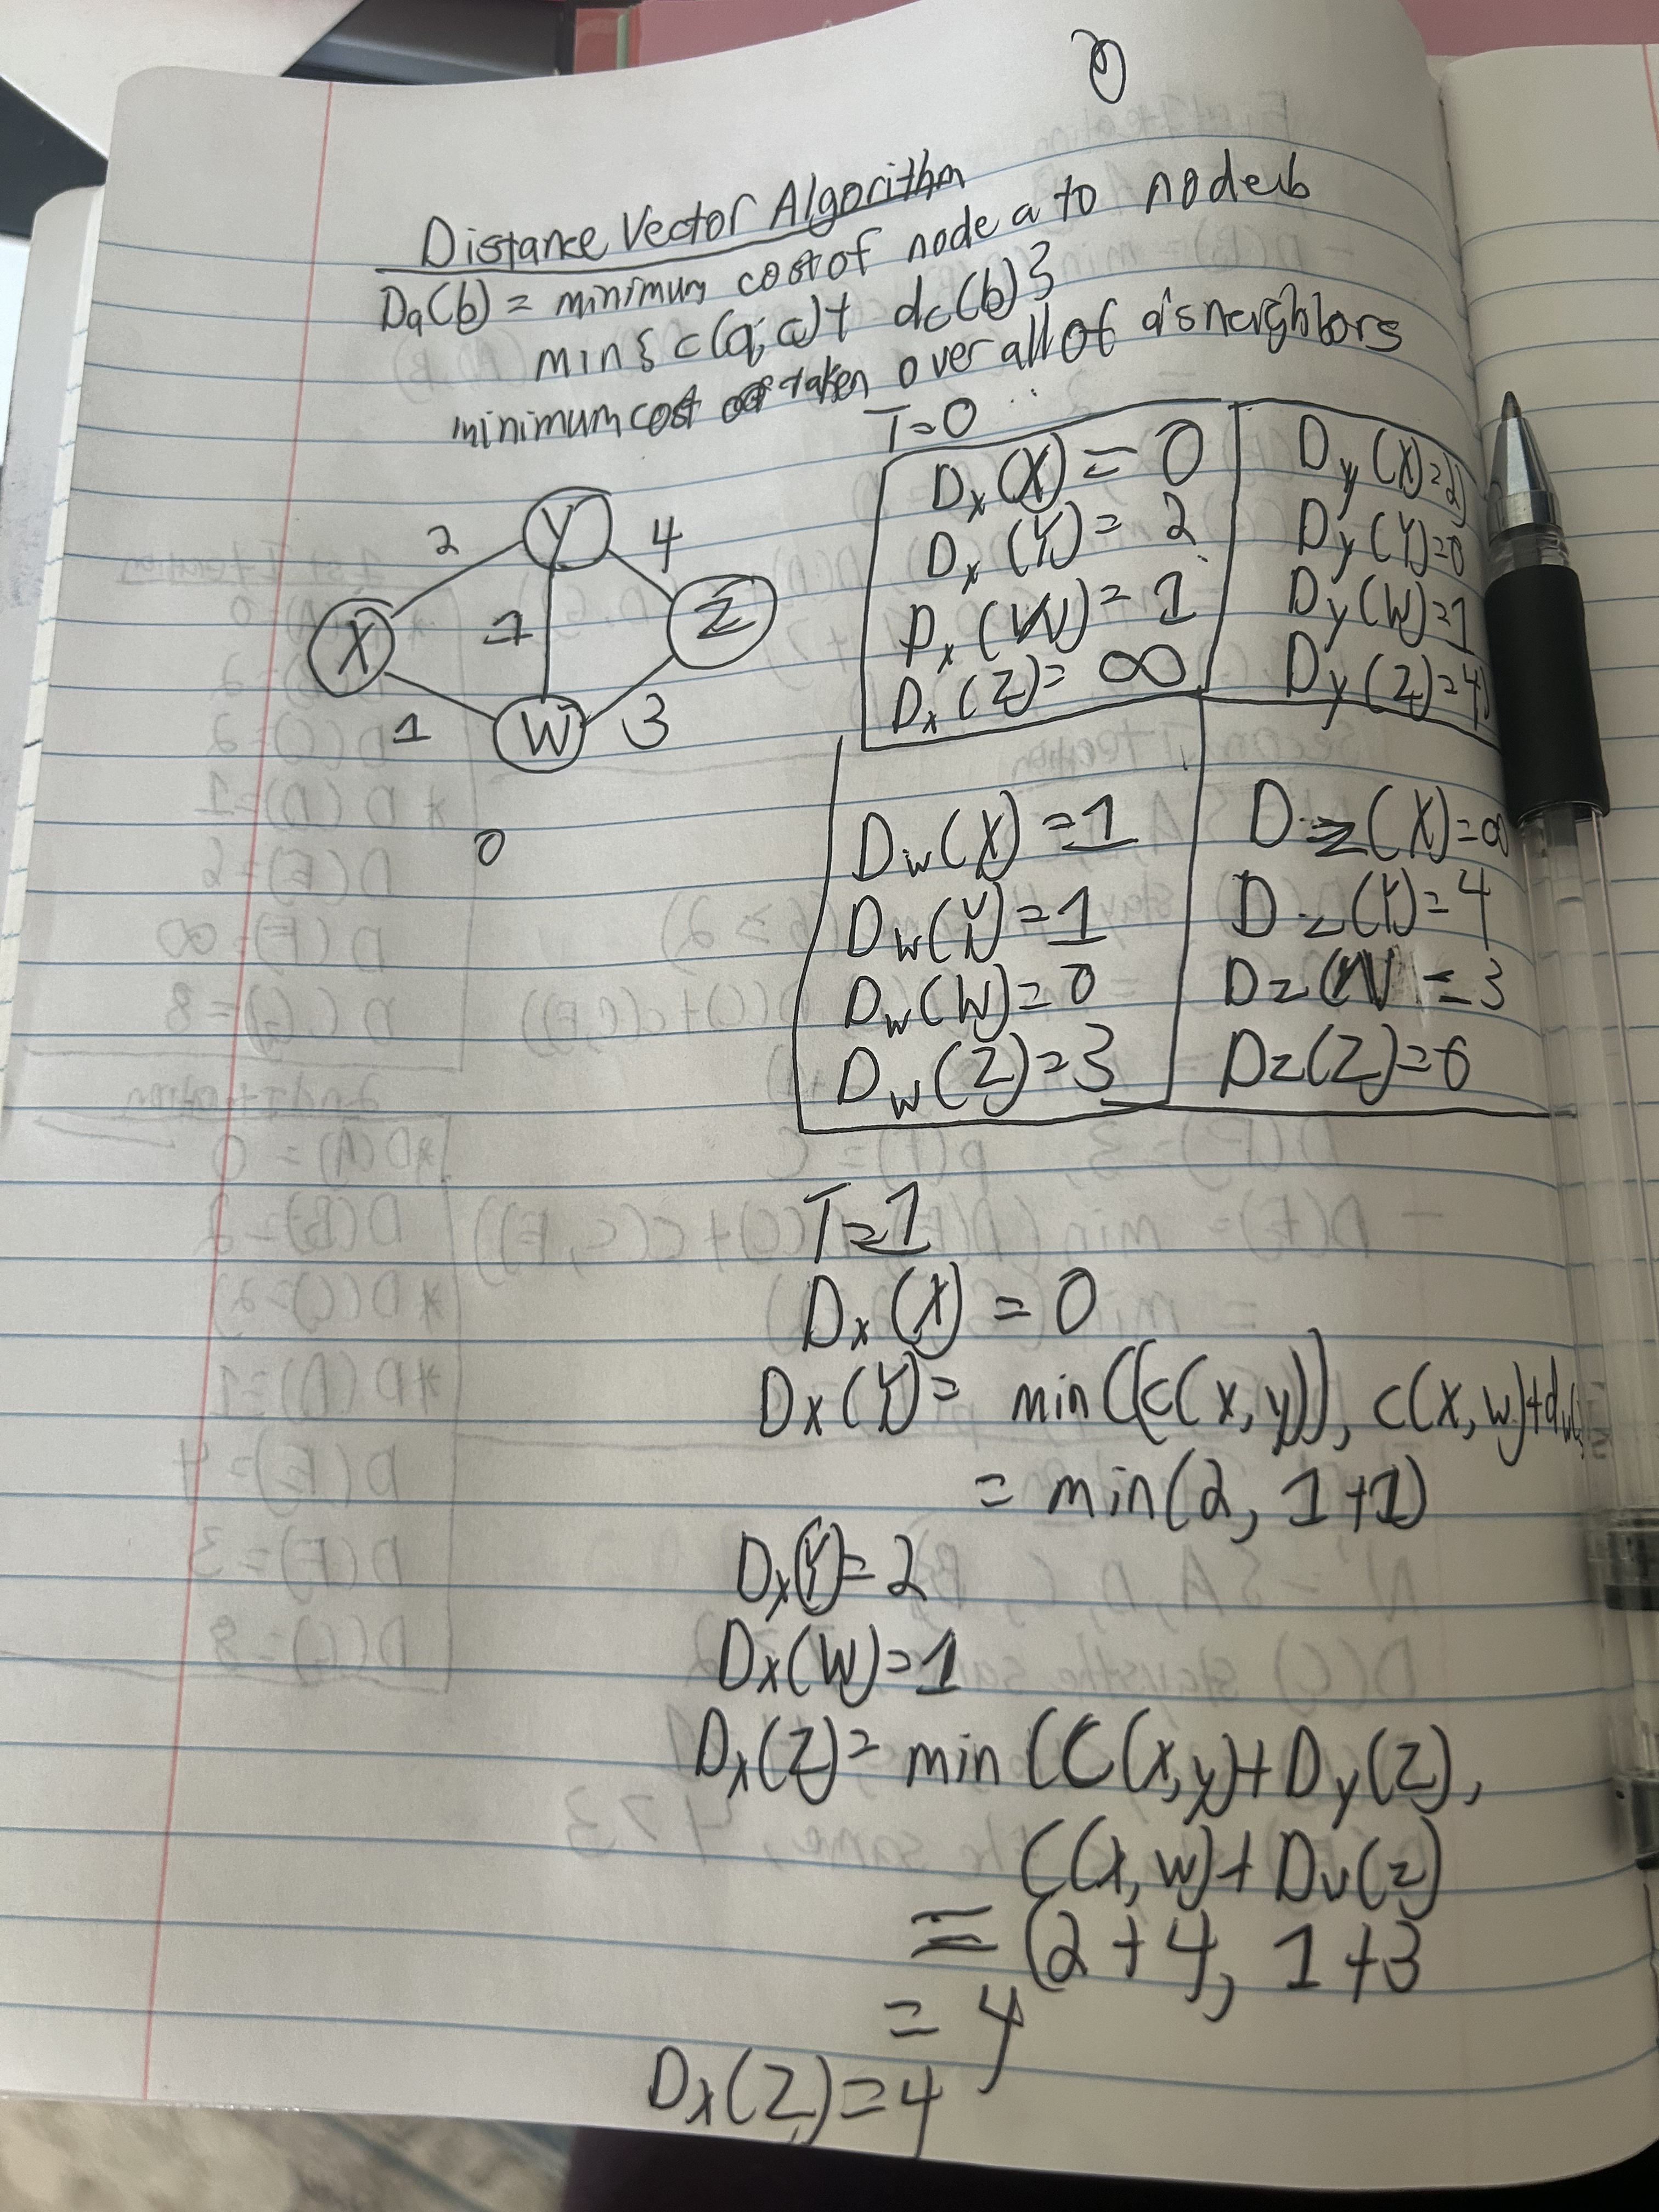 Distance Vector Algorithm
Da(b) = minimum cost of node a to node b
min{c(a,c)+ dc(b)}
minimum cost taken over all of a's neighbors
T=0
Dx(X)=0
Dx(Y)=2
Dx(W)=1
Dx(Z)=∞
Dy(X)=2
Dy(Y)=0
Dy(W)=1
Dy(Z)=4
2
Y
4
X
1
Z
1
W
3
0
Dw(X)=1
Dw(Y)=1
Dw(W)=0
Dw(Z)=3
Dz(X)=∞
Dz(Y)=4
Dz(W)=3
Dz(Z)=0
T=1
Dx(X)=0
Dx(Y)= min((c(x,y)), c(x,w)+dw(
= min(2, 1+1)
Dx(Y)=2
Dx(W)=1
Dx(Z)= min (C(x,y)+Dy(Z),
C(x,w)+Dw(z)
= (2+4, 1+3
= 4
Dx(Z)=4